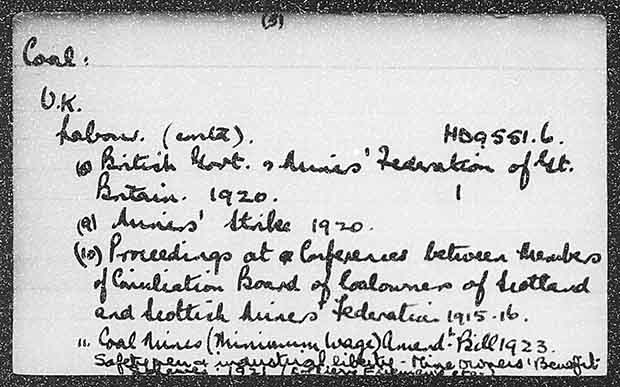 (3)
Coal:
U.K.
Labour. (contd).
HD9551.6.
(8) British Govt. & Miners' Federation of Gt.
Britain. 1920. 1
(9) Miners' Strike 1920.
(10) Proceedings at Conferences between Members
of Conciliation Board of Coalowners of Scotland
and Scottish Miners' Federation 1915-16.
11. Coal Mines (Minimum Wage) Amendt. Bill 1923.
industrial liberty - Mine Owners' Benefit
1921